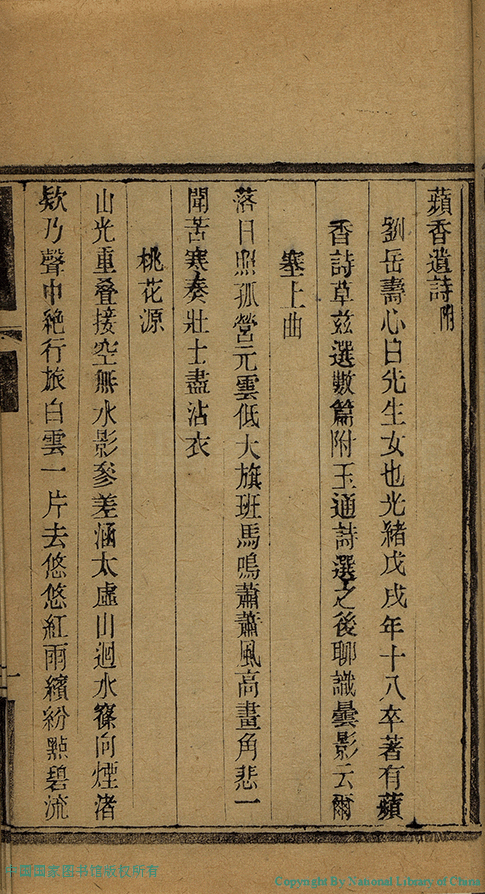 蘋香遺詩附
劉岳壽心白先生女也光緒戊戌年十八卒著有蘋
香詩草茲選數篇附玉通詩選之後聊識曇影云爾
塞上曲
落日照孤營元雲低大旗班馬鳴蕭蕭風高畫角悲一
聞苦寒奏壯士盡沾衣
桃花源
山光重叠接空無水影參差涵太虛山迴水窱向煙渚
欸乃聲中絕行旅白雲一片去悠悠紅雨繽紛點碧流
中國國家图书馆版权所有
Copyright By National Library of China